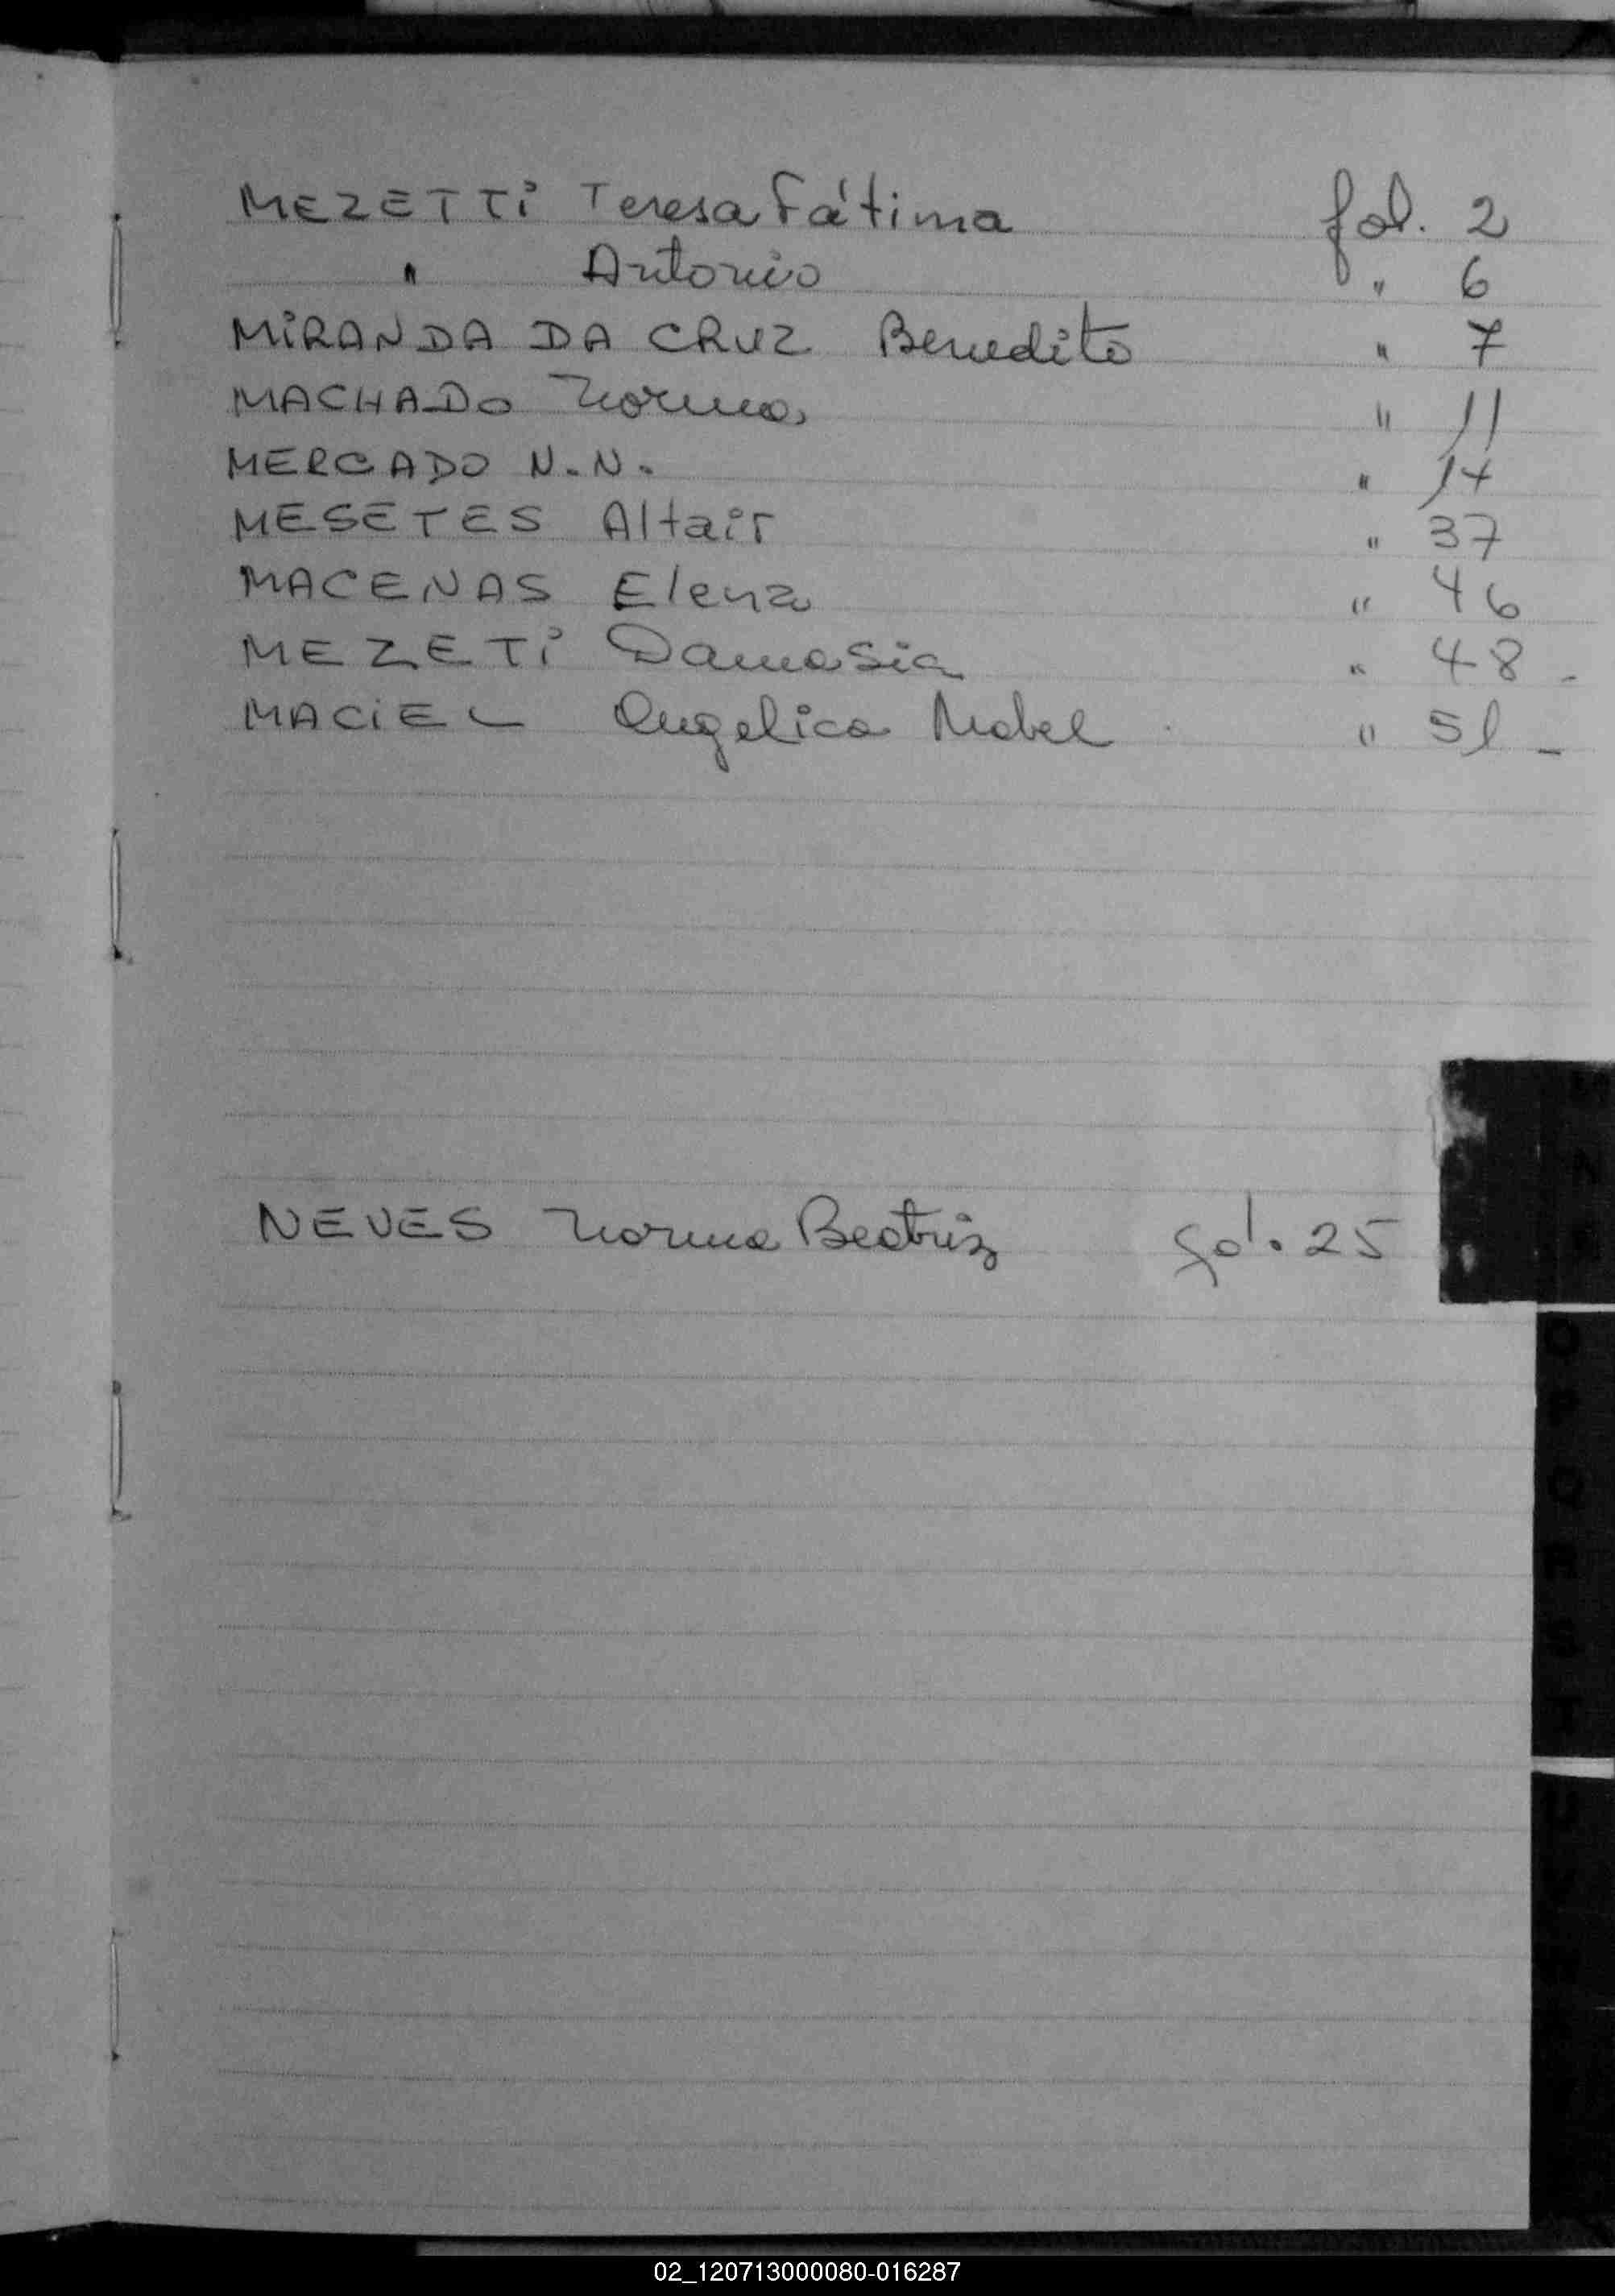 MEZETTi Teresa Fátima fol. 2
" Antonio " 6
MiRANDA DA CRUZ Benedito " 7
MACHADO Norma " 11
MERCADO N.N. " 14
MESETES Altair " 37
MACENAS Elena " 46
MEZETi Damasia " 48 -
MACiEL Angelica Mabel " 51 -
NEVES Norma Beatriz fol. 25
N
O
P
Q
R
S
T
U
02_120713000080-016287